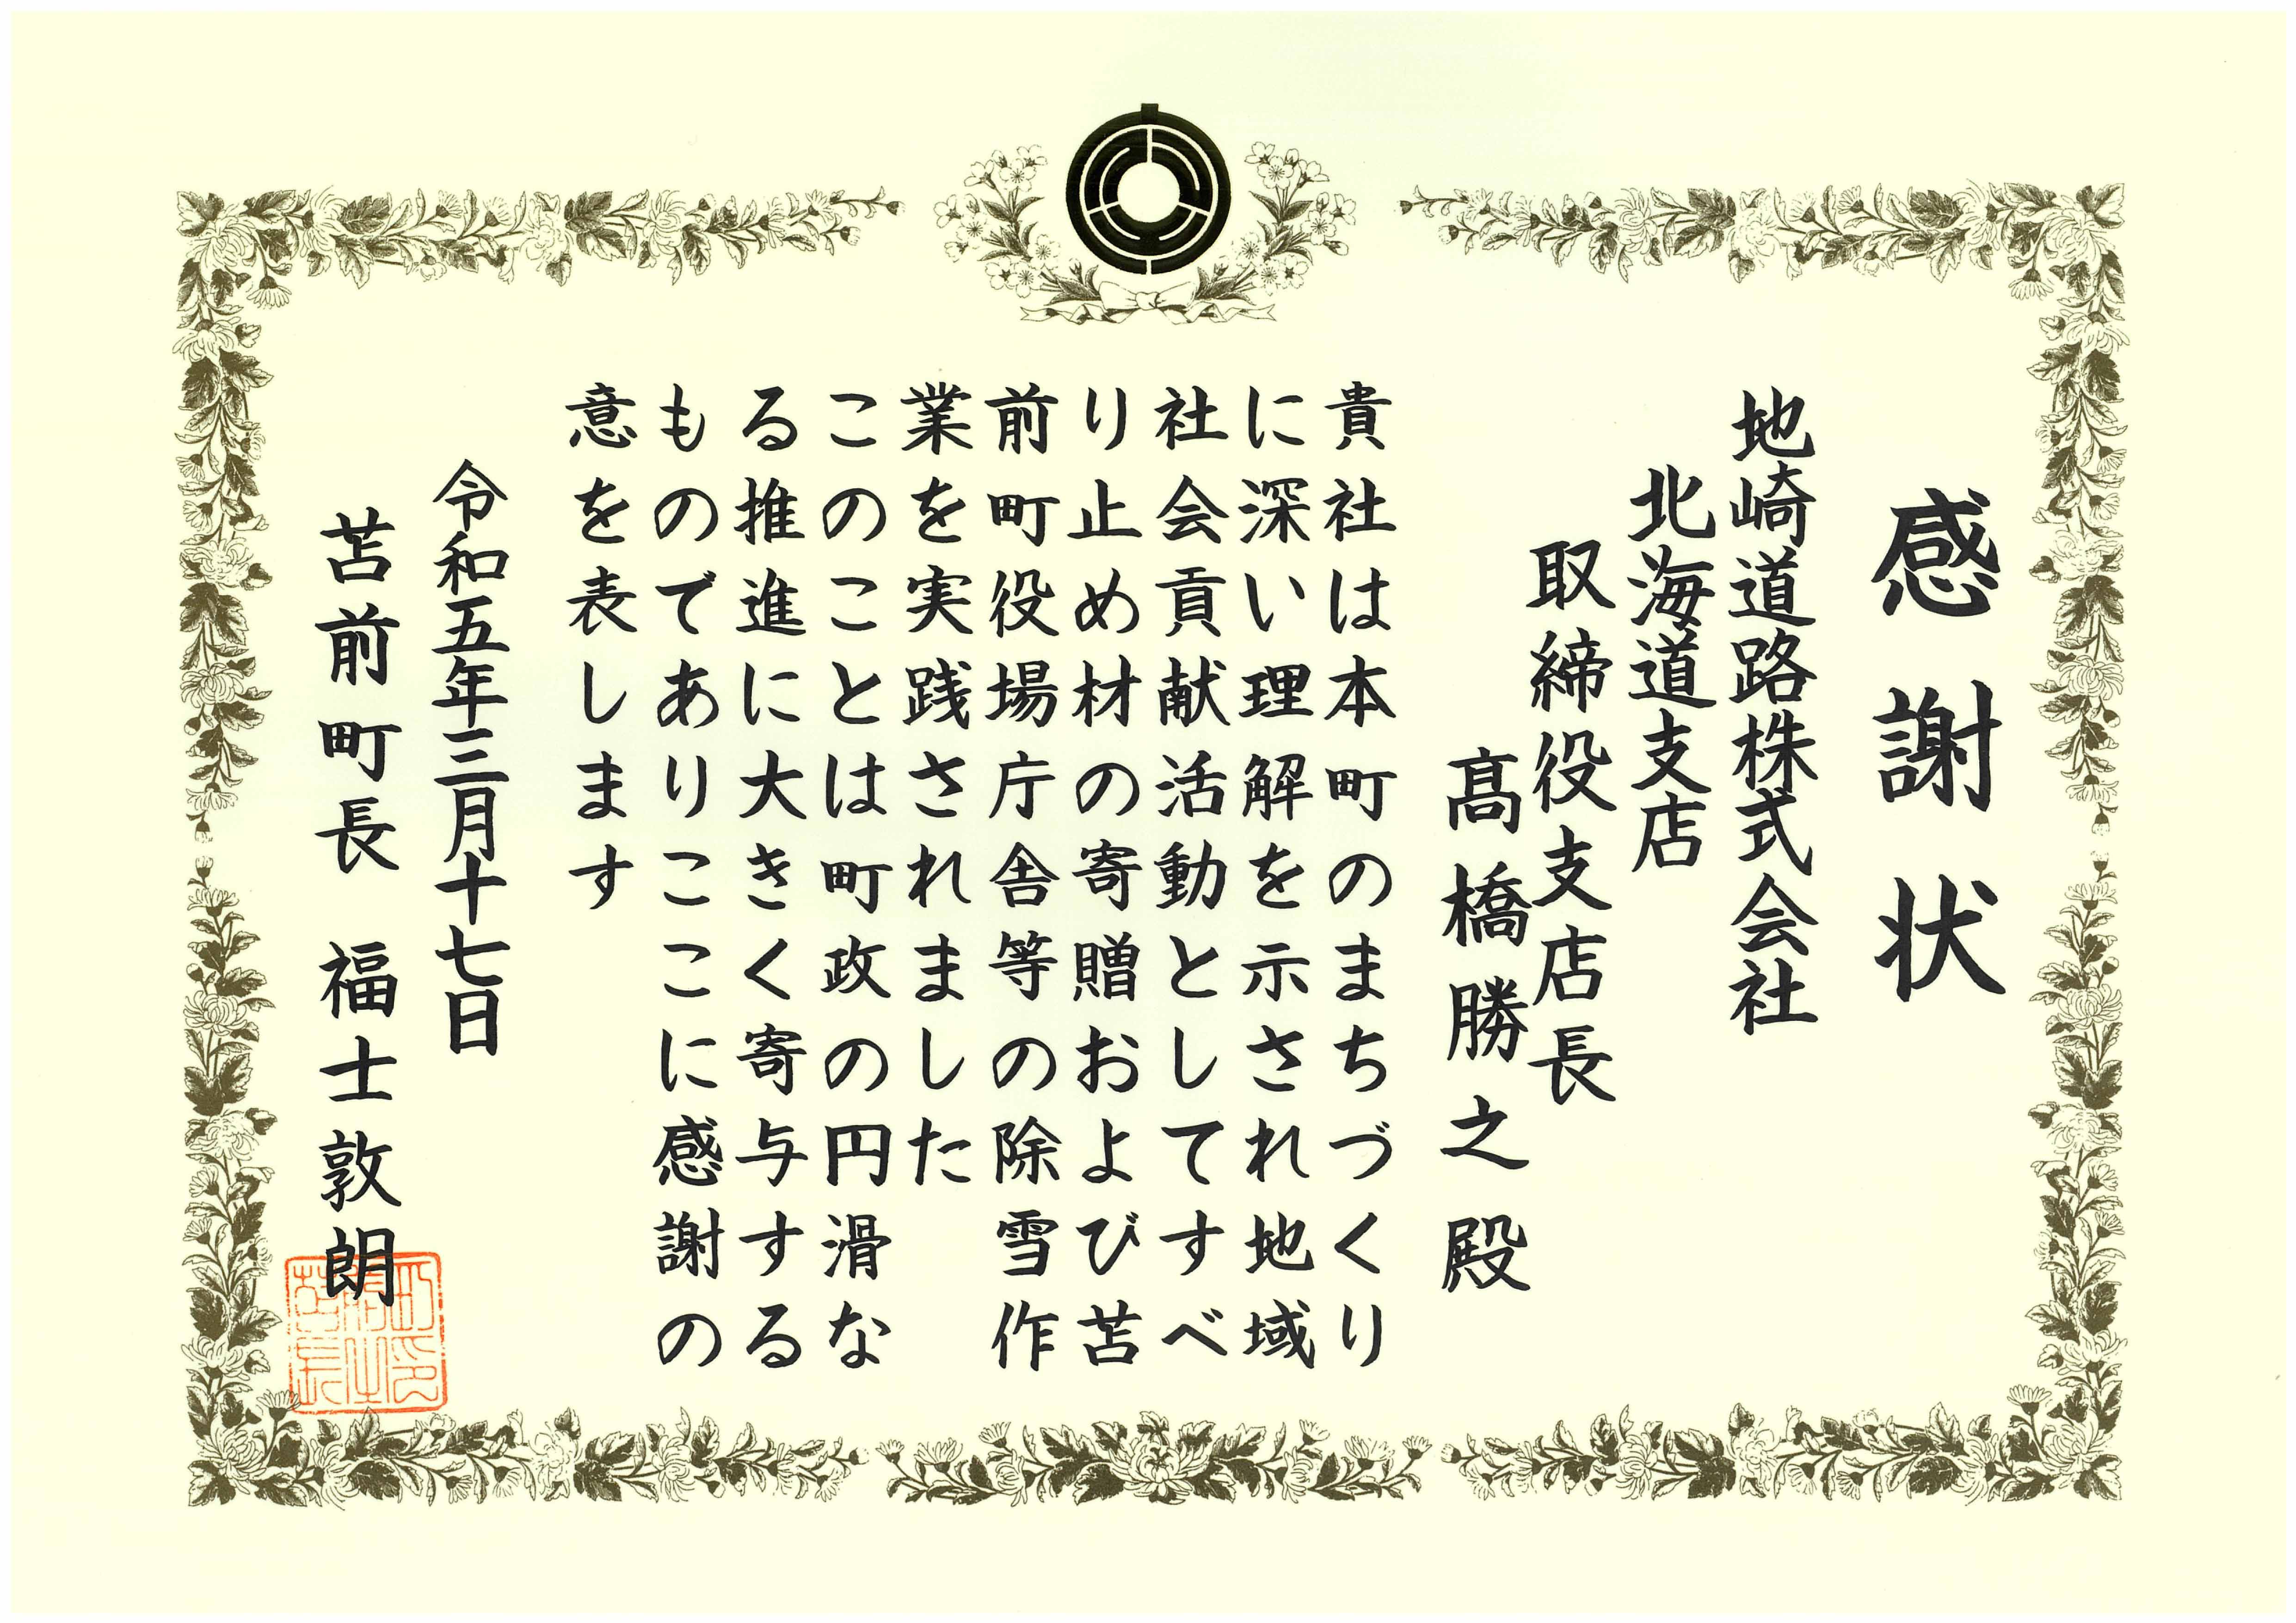 感謝状
地崎道路株式会社
北海道支店
取締役支店長
髙橋勝之殿
貴社は本町のまちづくり
に深い理解を示され地域
社会貢献活動としてすべ
り止め材の寄贈および苫
前町役場庁舎等の除雪作
業を実践されました
このことは町政の円滑な
る推進に大きく寄与する
ものでありここに感謝の
意を表します
令和五年三月十七日
苫前町長 福士敦朗